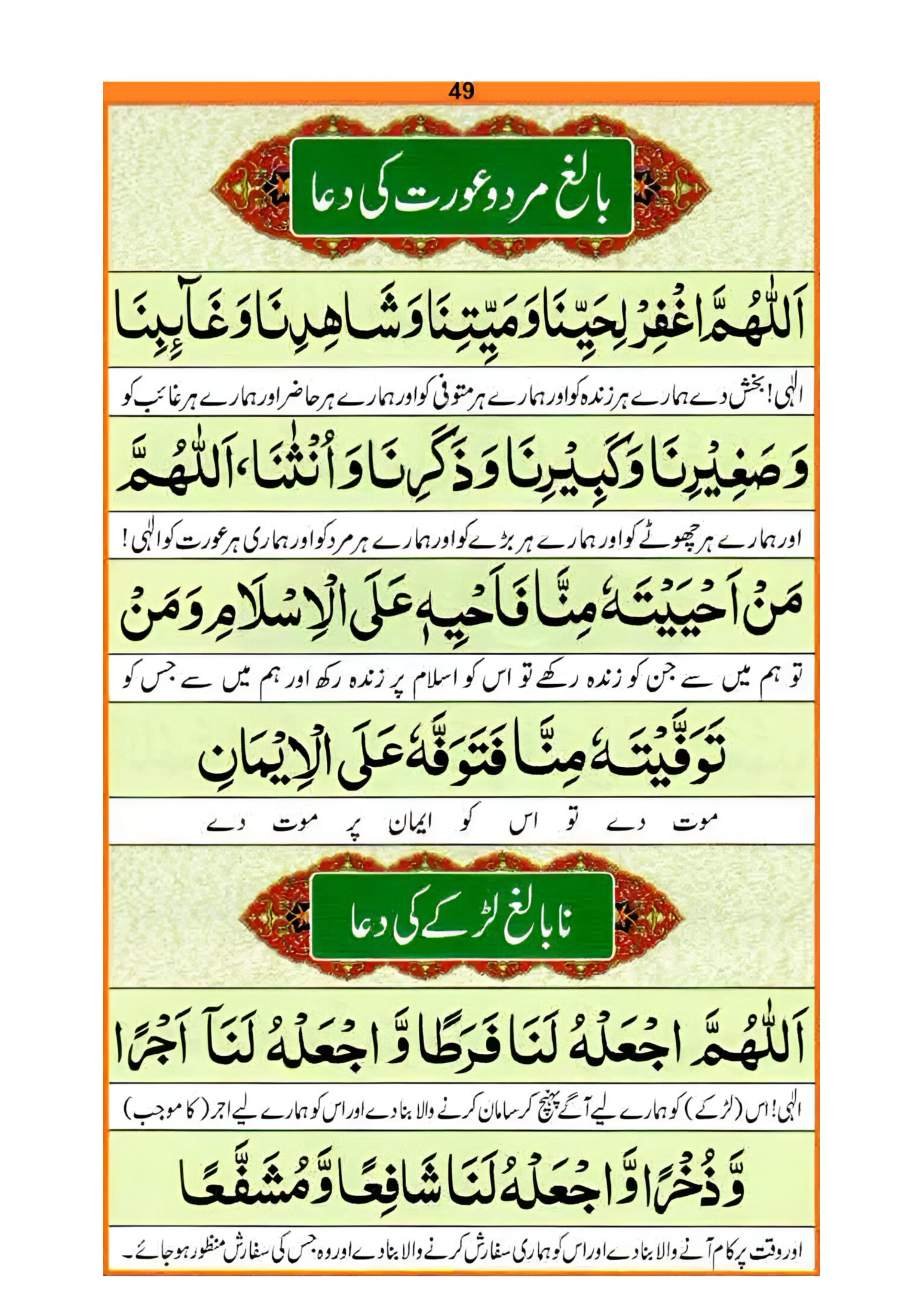 49
بالغ مرد و عورت کی دعا
اَللّٰهُمَّ اغْفِرْ لِحَيِّنَا وَمَيِّتِنَا وَشَاهِدِنَا وَغَآئِبِنَا
الٰہی! بخش دے ہمارے ہر زندہ کو اور ہمارے ہر متوفی کو اور ہمارے ہر حاضر اور ہمارے ہر غائب کو
وَصَغِيْرِنَا وَكَبِيْرِنَا وَذَكَرِنَا وَاُنْثٰنَا، اَللّٰهُمَّ
اور ہمارے ہر چھوٹے کو اور ہمارے ہر بڑے کو اور ہمارے ہر مرد کو اور ہماری ہر عورت کو الٰہی!
مَنْ اَحْيَيْتَهٗ مِنَّا فَاَحْيِهٖ عَلَى الْاِسْلَامِ وَمَنْ
تو ہم میں سے جن کو زندہ رکھے تو اس کو اسلام پر زندہ رکھ اور ہم میں سے جس کو
تَوَفَّيْتَهٗ مِنَّا فَتَوَفَّهٗ عَلَى الْاِيْمَانِ
موت دے تو اس کو ایمان پر موت دے
نابالغ لڑکے کی دعا
اَللّٰهُمَّ اجْعَلْهُ لَنَا فَرَطًا وَّ اجْعَلْهُ لَنَآ اَجْرًا
الٰہی! اس (لڑکے) کو ہمارے لیے آگے پہنچ کر سامان کرنے والا بنا دے اور اس کو ہمارے لیے اجر (کا موجب)
وَّذُخْرًا وَّاجْعَلْهُ لَنَا شَافِعًا وَّمُشَفَّعًا
اور وقت پر کام آنے والا بنا دے اور اس کو ہماری سفارش کرنے والا بنا دے اور وہ جس کی سفارش منظور ہو جائے۔